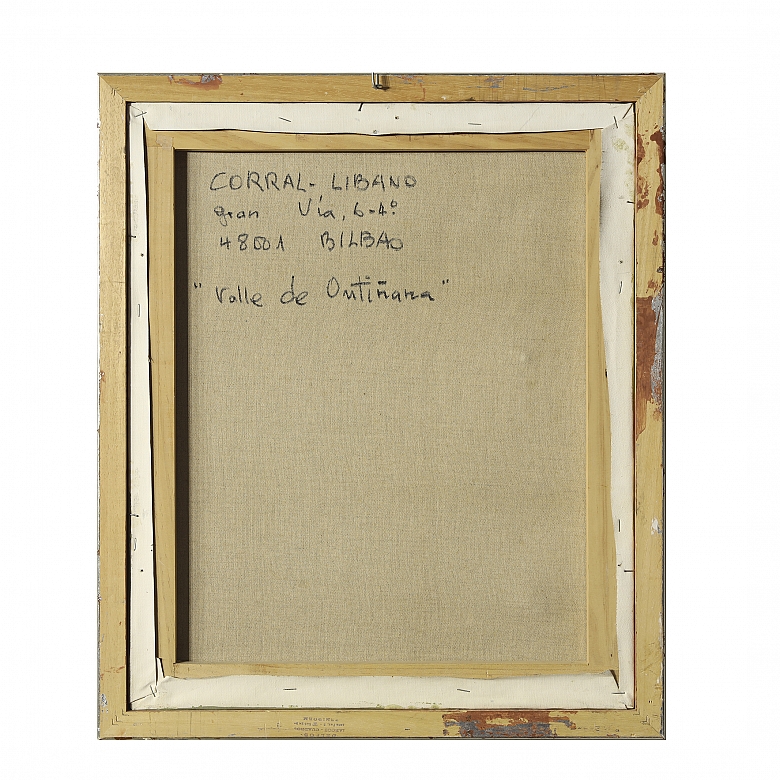 CORRAL- LIBANO
gran Vía, 6-4º
48001 BILBAO
"Valle de Ontiñana"